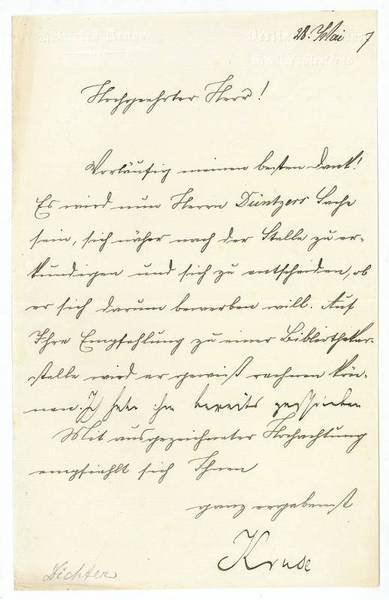 28. Mai
Hochgeehrter Herr!
Vorläufig meinen besten Dank!
Es wird nun Herrn Düntzers Sache
sein, sich näher nach der Stelle zu er-
kundigen und sich zu entscheiden, ob
er sich darum bewerben will. Auf
Ihre Empfehlung zu einer Bibliothekar-
stelle wird er gewiß rechnen kön-
nen. Ich habe ihm bereits geschrieben
Mit ausgezeichneter Hochachtung
empfiehlt sich Ihnen
ganz ergebenst
Kruse
Dichter